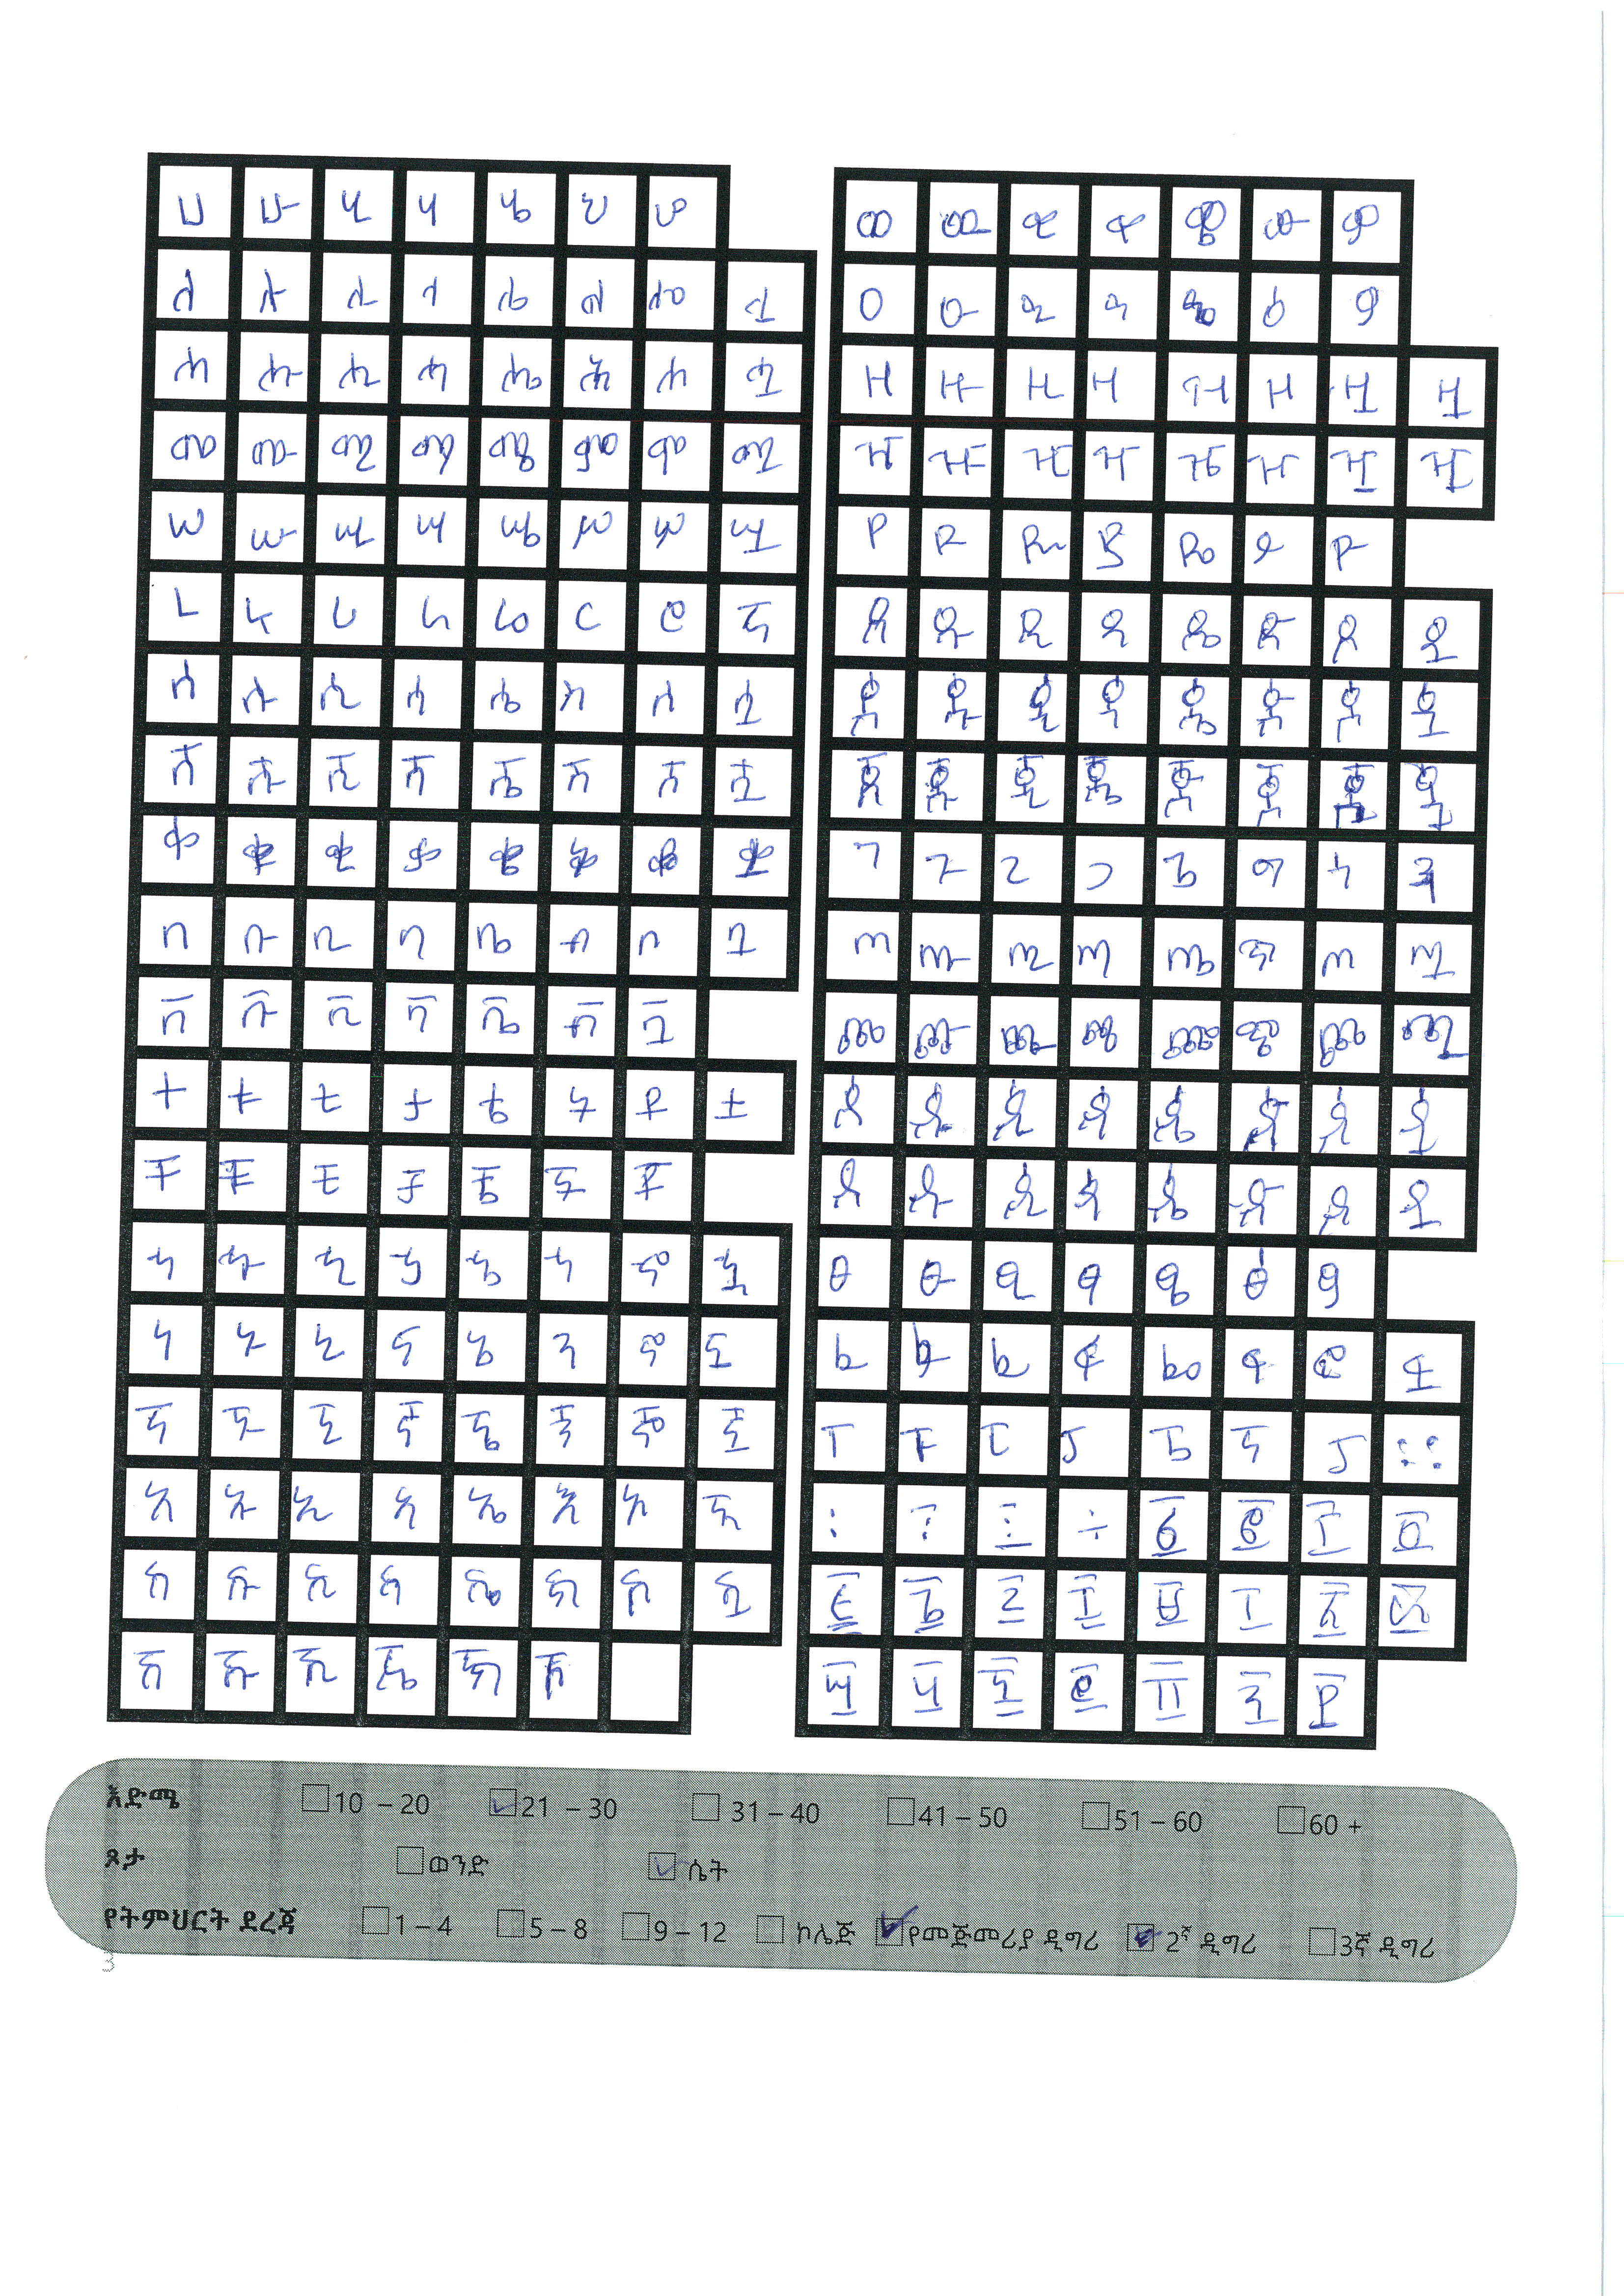 ሀ ሁ ሂ ሃ ሄ ህ ሆ
ለ ሉ ሊ ላ ሌ ል ሎ ሏ
ሐ ሑ ሒ ሓ ሔ ሕ ሖ ሗ
መ ሙ ሚ ማ ሜ ም ሞ ሟ
ሠ ሡ ሢ ሣ ሤ ሥ ሦ ሧ
ረ ሩ ሪ ራ ሬ ር ሮ ሯ
ሰ ሱ ሲ ሳ ሴ ስ ሶ ሷ
ሸ ሹ ሺ ሻ ሼ ሽ ሾ ሿ
ቀ ቁ ቂ ቃ ቄ ቅ ቆ ቋ
በ ቡ ቢ ባ ቤ ብ ቦ ቧ
ቨ ቩ ቪ ቫ ቬ ቭ ቯ
ተ ቱ ቲ ታ ቴ ት ቶ ቷ
ቸ ቹ ቺ ቻ ቼ ች ቾ
ኀ ኁ ኂ ኃ ኄ ኅ ኆ ኋ
ነ ኑ ኒ ና ኔ ን ኖ ኗ
ኘ ኙ ኚ ኛ ኜ ኝ ኞ ኟ
አ ኡ ኢ ኣ ኤ እ ኦ ኧ
ከ ኩ ኪ ካ ኬ ክ ኮ ኳ
ኸ ኹ ኺ ኼ ኽ ኾ
ወ ዉ ዊ ዋ ዌ ው ዎ
ዐ ዑ ዒ ዓ ዔ ዕ ዖ
ዘ ዙ ዚ ዛ ዜ ዝ ዞ ዟ
ዠ ዡ ዢ ዣ ዤ ዥ ዦ ዧ
የ ዩ ዪ ያ ዬ ይ ዮ
ደ ዱ ዲ ዳ ዴ ድ ዶ ዷ
ጀ ጁ ጂ ጃ ጄ ጅ ጆ ጇ
ገ ጉ ጊ ጋ ጌ ግ ጎ ጓ
ጠ ጡ ጢ ጣ ጤ ጥ ጦ ጧ
ጨ ጩ ጪ ጫ ጬ ጭ ጮ ጯ
ጰ ጱ ጲ ጳ ጴ ጵ ጶ ጷ
ጸ ጹ ጺ ጻ ጼ ጽ ጾ ጿ
ፀ ፁ ፂ ፃ ፄ ፅ ፆ
ፈ ፉ ፊ ፋ ፌ ፍ ፎ ፏ
ፐ ፑ ፒ ፓ ፔ ፕ ፖ ።
፡ ፣ ፤ ÷ ፩ ፪ ፫ ፬
፭ ፮ ፯ ፰ ፱ ፲ ፳ ፴
፵ ፶ ፷ ፸ ፹ ፺ ፻
እድሜ 10 – 20 21 – 30 31 – 40 41 – 50 51 – 60 60 +
ጾታ ወንድ ሴት
የትምህርት ደረጃ 1 – 4 5 – 8 9 – 12 ኮሌጅ የመጀመሪያ ዲግሪ 2ኛ ዲግሪ 3ኛ ዲግሪ
3